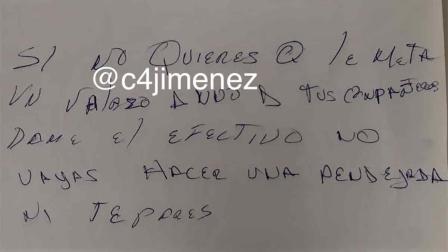 SI NO QUIERES Q LE META
@c4jimenez
UN VALAZO A UNO D TUS COMPAÑEROS
DAME El EFECTIVO NO
VAYAS HACER UNA PENDEJADA
NI TE PARES